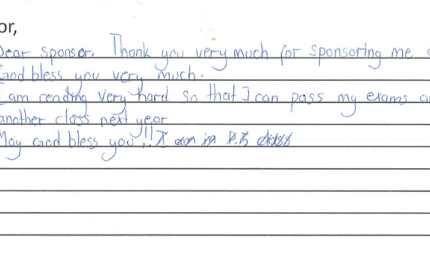 or,
Dear sponsor. Thank you very much for sponsoring me
God bless you very much.
I am reading very hard so that I can pass my exams
another class next year
May God bless you!! I am in P.5